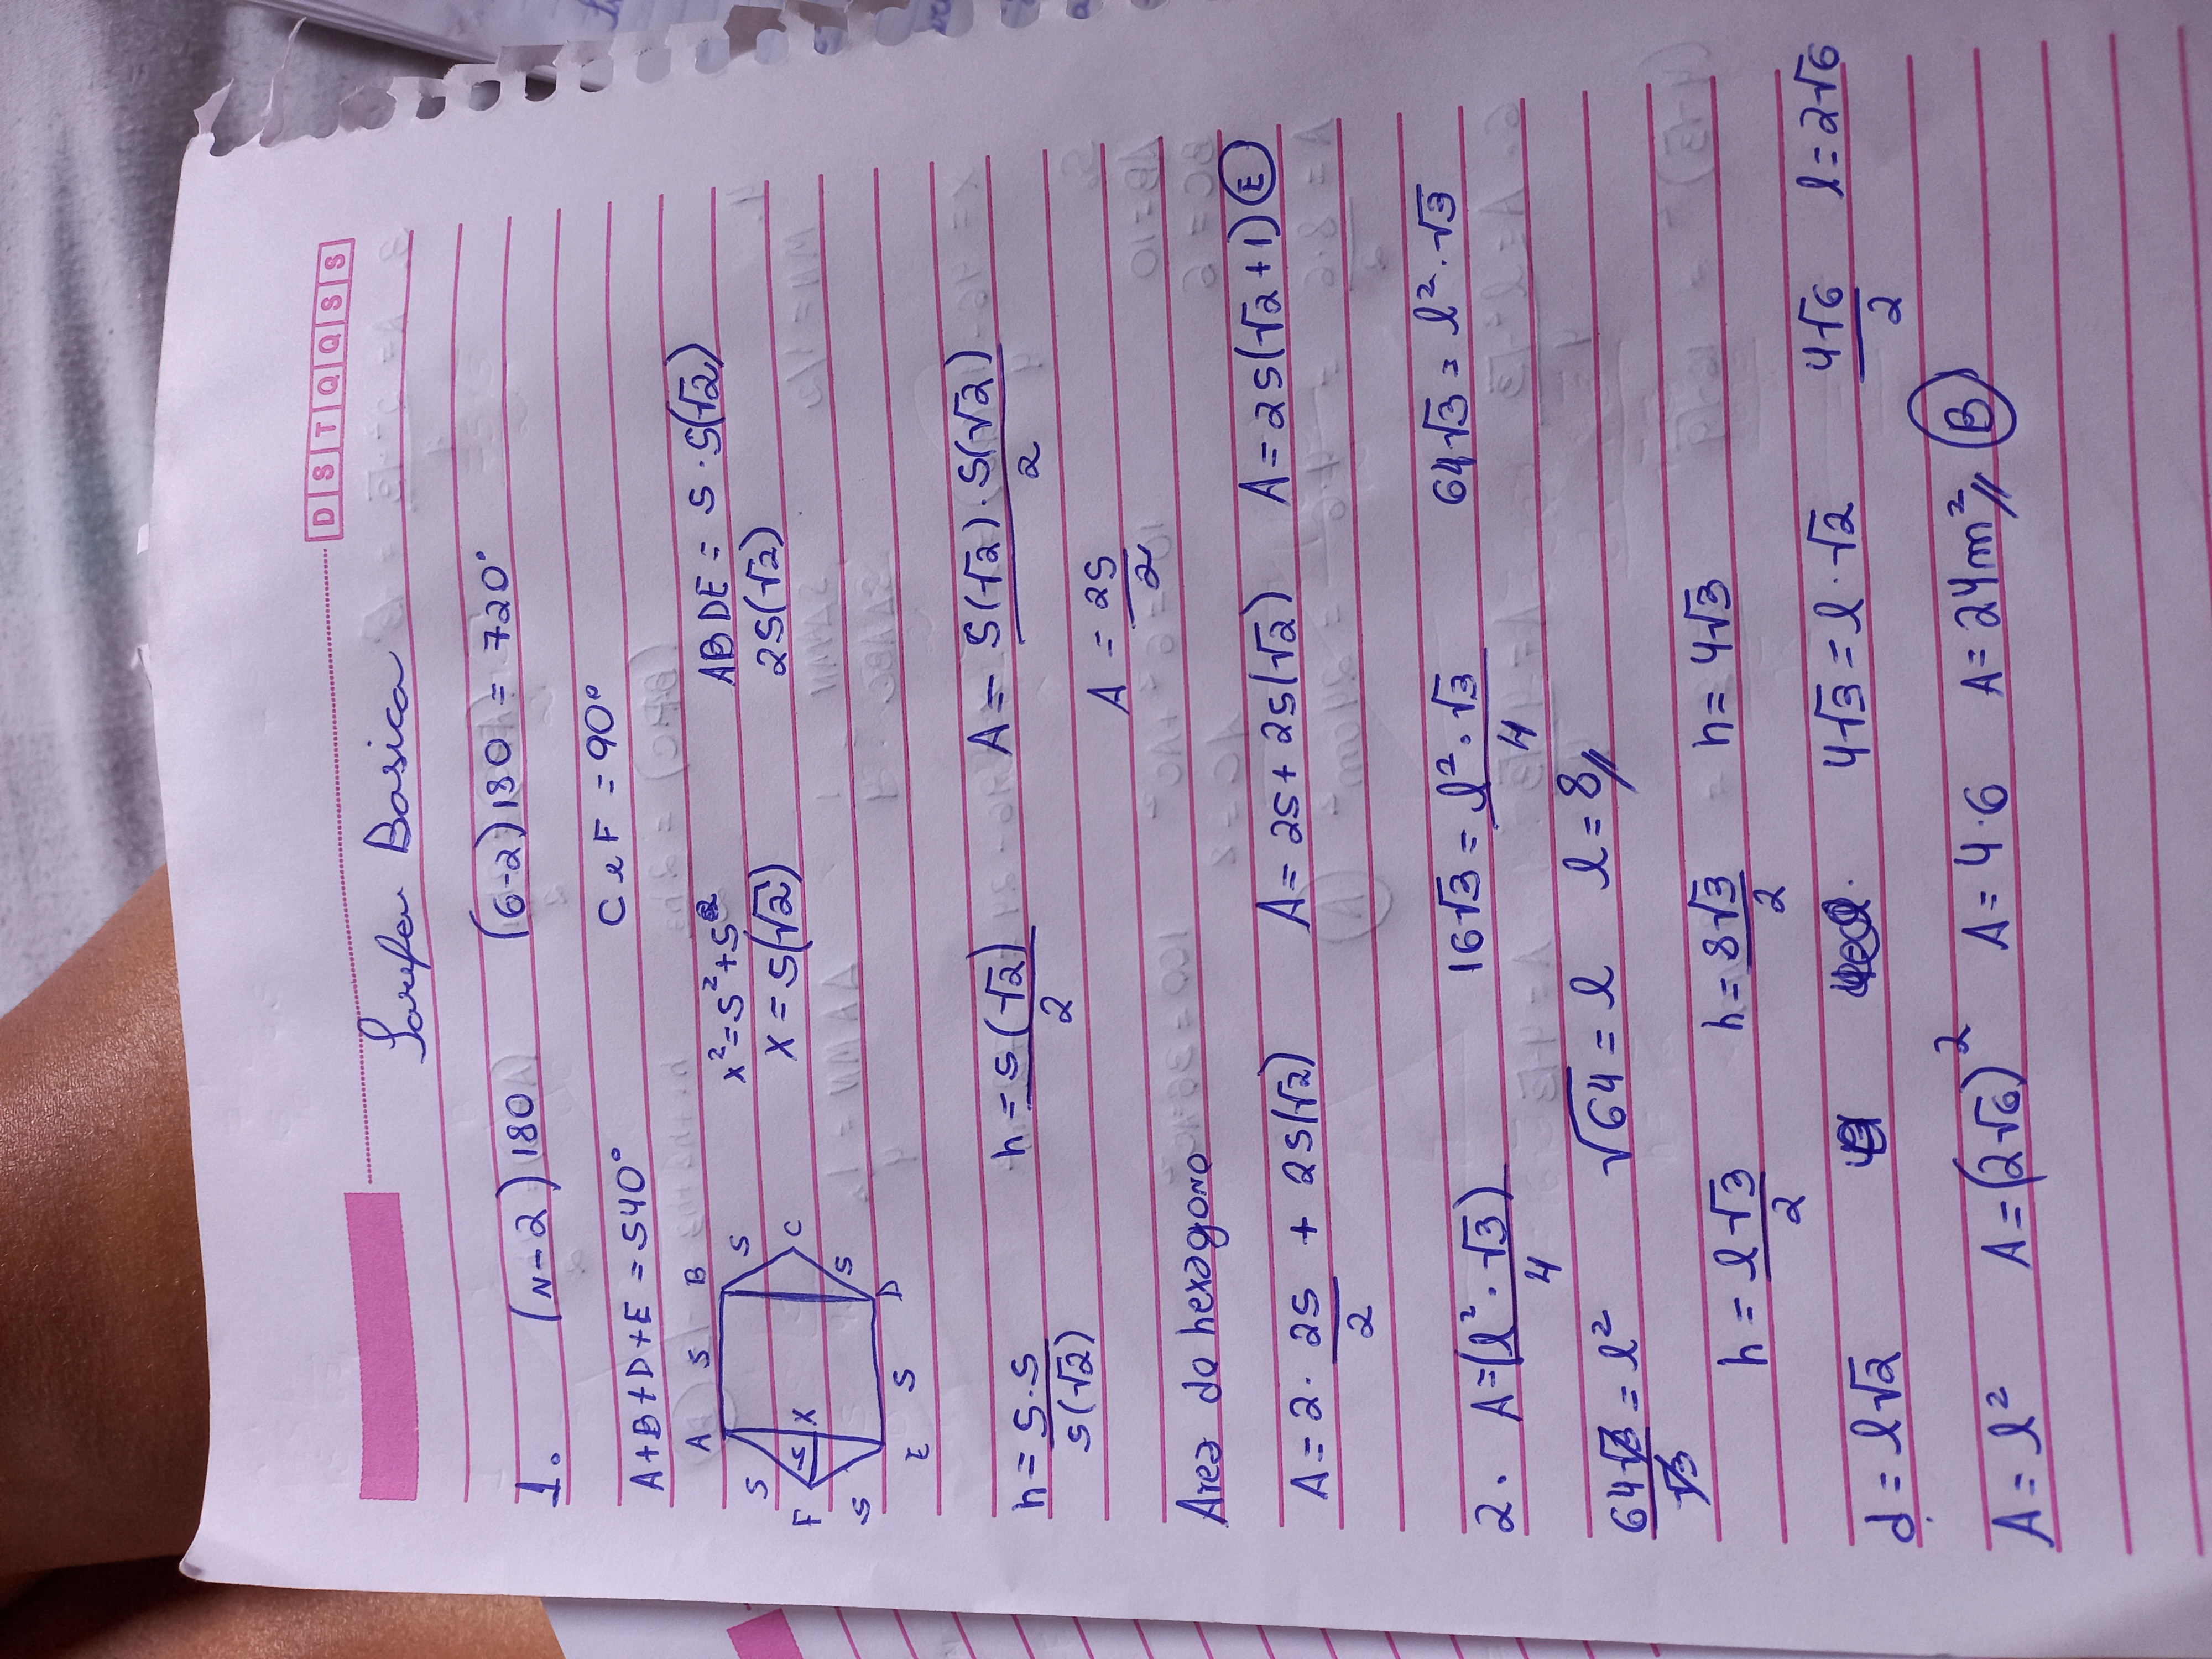 D S T Q Q S S
Tarefa Basica
1. (N-2)180 (6-2)180 = 720°
A+B+D+E = 540° C e F = 90°
A S B S
x² = 5² + 5² ABDE = 5 · 5(√2)
S F S X C S
x = 5(√2) 25(√2)
E S D
h = 5·5 / 5(√2) h = 5(√2) / 2 A = 5(√2) · 5(√2) / 2
A = 25 / 2
Area do hexagono
A = 2 · 25 / 2 + 25(√2) A = 25 + 25(√2) A = 25(√2 + 1) E
2. A = (l² · √3) / 4 16√3 = l² · √3 / 4 64√3 = l² · √3
64√3 / √3 = l² √64 = l l = 8
h = l√3 / 2 h = 8√3 / 2 h = 4√3
d = l√2 4√3 = l · √2 4√6 / 2 l = 2√6
A = l² A = (2√6)² A = 4·6 A = 24m² B